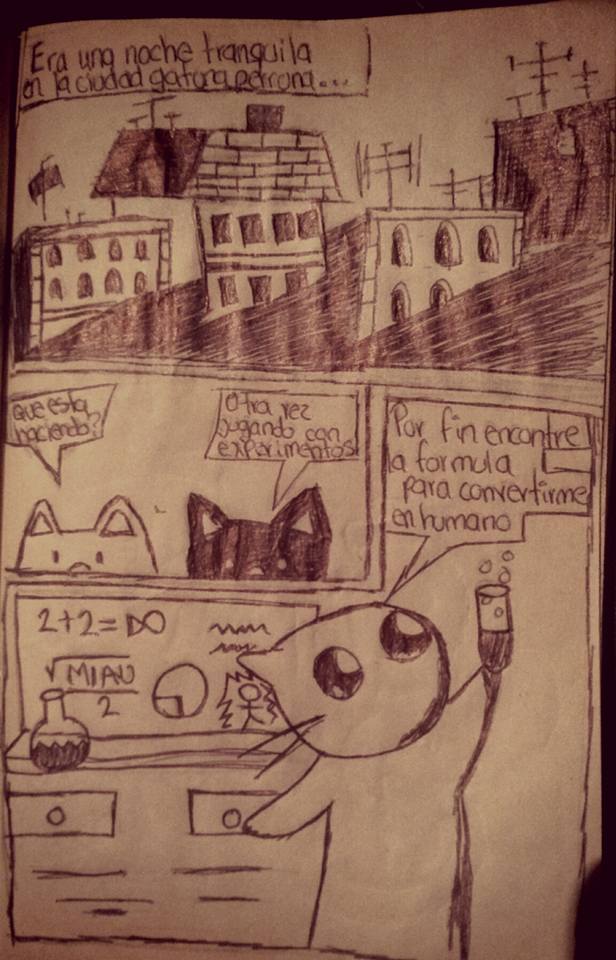 Era una noche tranquila
en la ciudad gatuna perrona...
que esta
haciendo?
Otra vez
jugando con
experimentos
Por fin encontre
la formula
para convertirme
en humano
2+2=∞
√MIAU
2